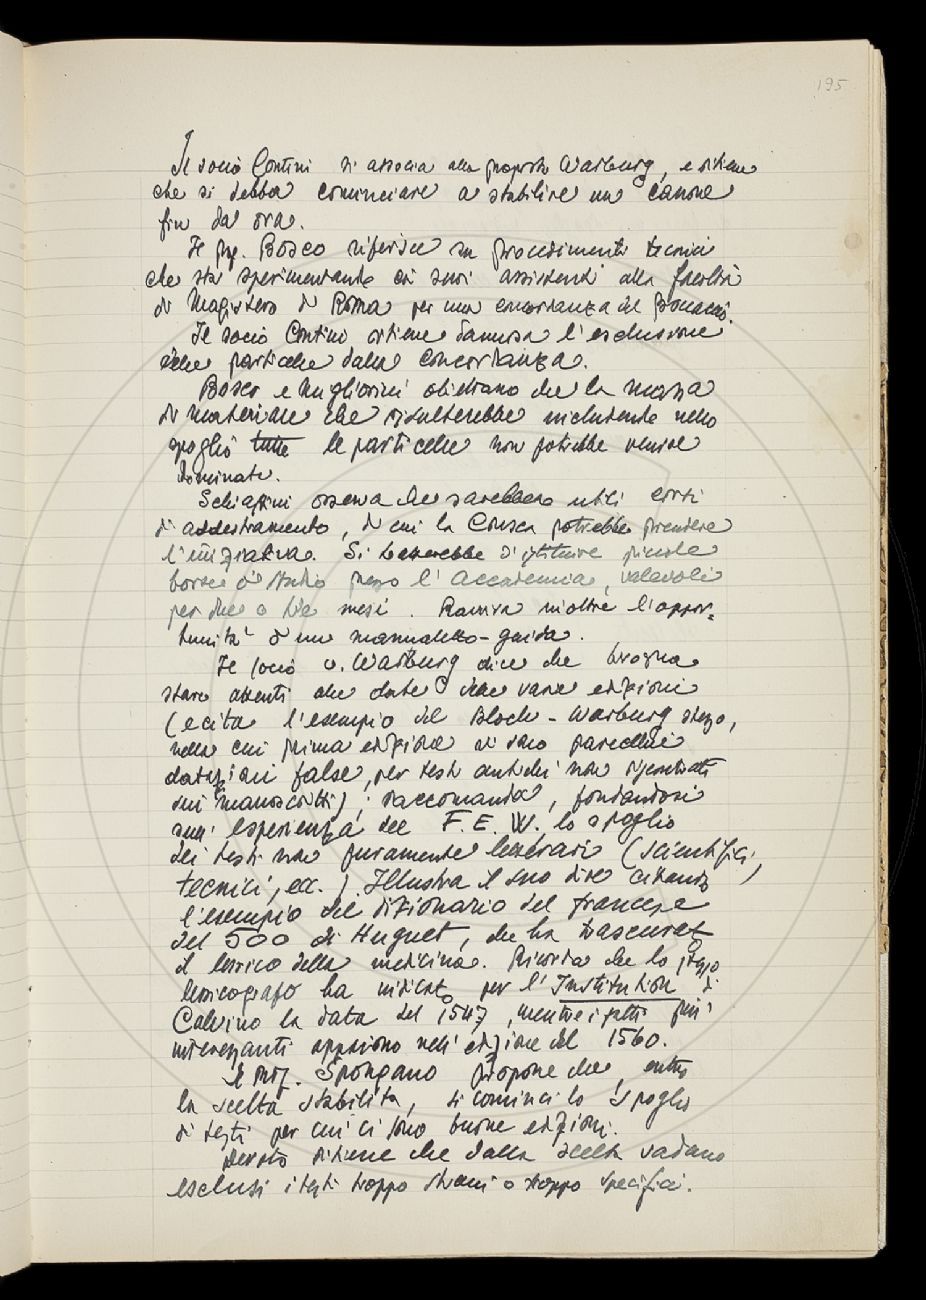 195
Il socio Contini si associa alla proposta Warburg, e ritiene
che si debba cominciare a stabilire un canone
fin da ora.
Il prof. Bosco riferisce su procedimenti tecnici
che sta sperimentando coi suoi assistenti alla facoltà
di Magistero di Roma per una concordanza del Boccaccio.
Il socio Contini ritiene dannosa l'esclusione
delle particelle dalla concordanza.
Bosco e Migliorini obiettano che la massa
di materiale che risulterebbe includendo nello
spoglio tutte le particelle non potrebbe venire
dominata.
Schiaffini osserva che sarebbero utili corsi
di addestramento, di cui la Crusca potrebbe prendere
l'iniziativa. Si tratterebbe d'istituire piccole
borse di studio presso l'Accademia, valevoli
per due o tre mesi. Ravvisa inoltre l'oppor-
tunità d'un manualetto-guida.
Il socio v. Warburg dice che bisogna
stare attenti alle date delle varie edizioni
(e cita l'esempio del Bloch-Warburg stesso,
nella cui prima edizione vi sono parecchie
datazioni false, per testi antichi non riscontrati
sui manoscritti); raccomanda, fondandosi
sull'esperienza del F.E.W. lo spoglio
dei testi non puramente letterari (scientifici,
tecnici, ecc.). Illustra il suo dire citando
l'esempio del dizionario del francese
del 500 di Huguet, che ha trascurato
il lessico della medicina. Ricorda che lo stesso
lessicografo ha indicato per l'Institution di
Calvino la data del 1547, mentre i fatti più
interessanti appaiono nell'edizione del 1560.
Il prof. Spongano propone che, entro
la scelta stabilita, si cominci lo spoglio
di testi per cui ci sono buone edizioni.
Devoto ritiene che dalla scelta vadano
esclusi i testi troppo strani o troppo specifici.